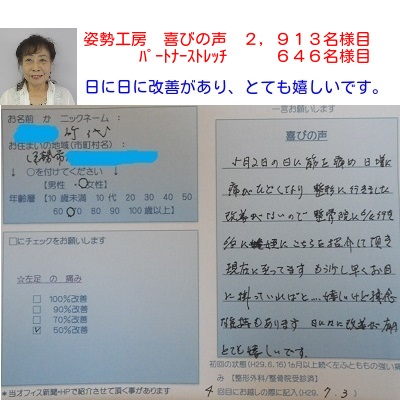 姿勢工房 喜びの声 2,913名様目
パートナーストレッチ 646名様目
日に日に改善があり、とても嬉しいです。
お名前 か ニックネーム:
代
お住まいの地域(市町村名)
市
↓ ○を付けてください
【男性 ・○女性】
年齢層【10歳未満 10代 20 30 40 50
60 70 80 90 100歳以上】
□にチェックをお願いします
☆左足 の 痛み
□ 100%改善
□ 90%改善
□ 70%改善
☑ 50%改善
*当オフィス新聞・HPで紹介させて頂く事があります
一言お願いします
喜びの声
5月2日の日に筋を痛め 日増に
痛みがひどくなり 整形に行きました
改善がないので 整骨院に
こちらを紹介して頂き
現在に至ってます もう少し早くお目に
掛っていればと… 嬉しいけど残念
日に日に改善が
とても嬉しいです。
初回の状態(H29.6.16)1ヵ月以上続く左ふとももの強い
み【整形外科/整骨院受診済】
4回目にお越しの際に記入(H29. 7. 3)